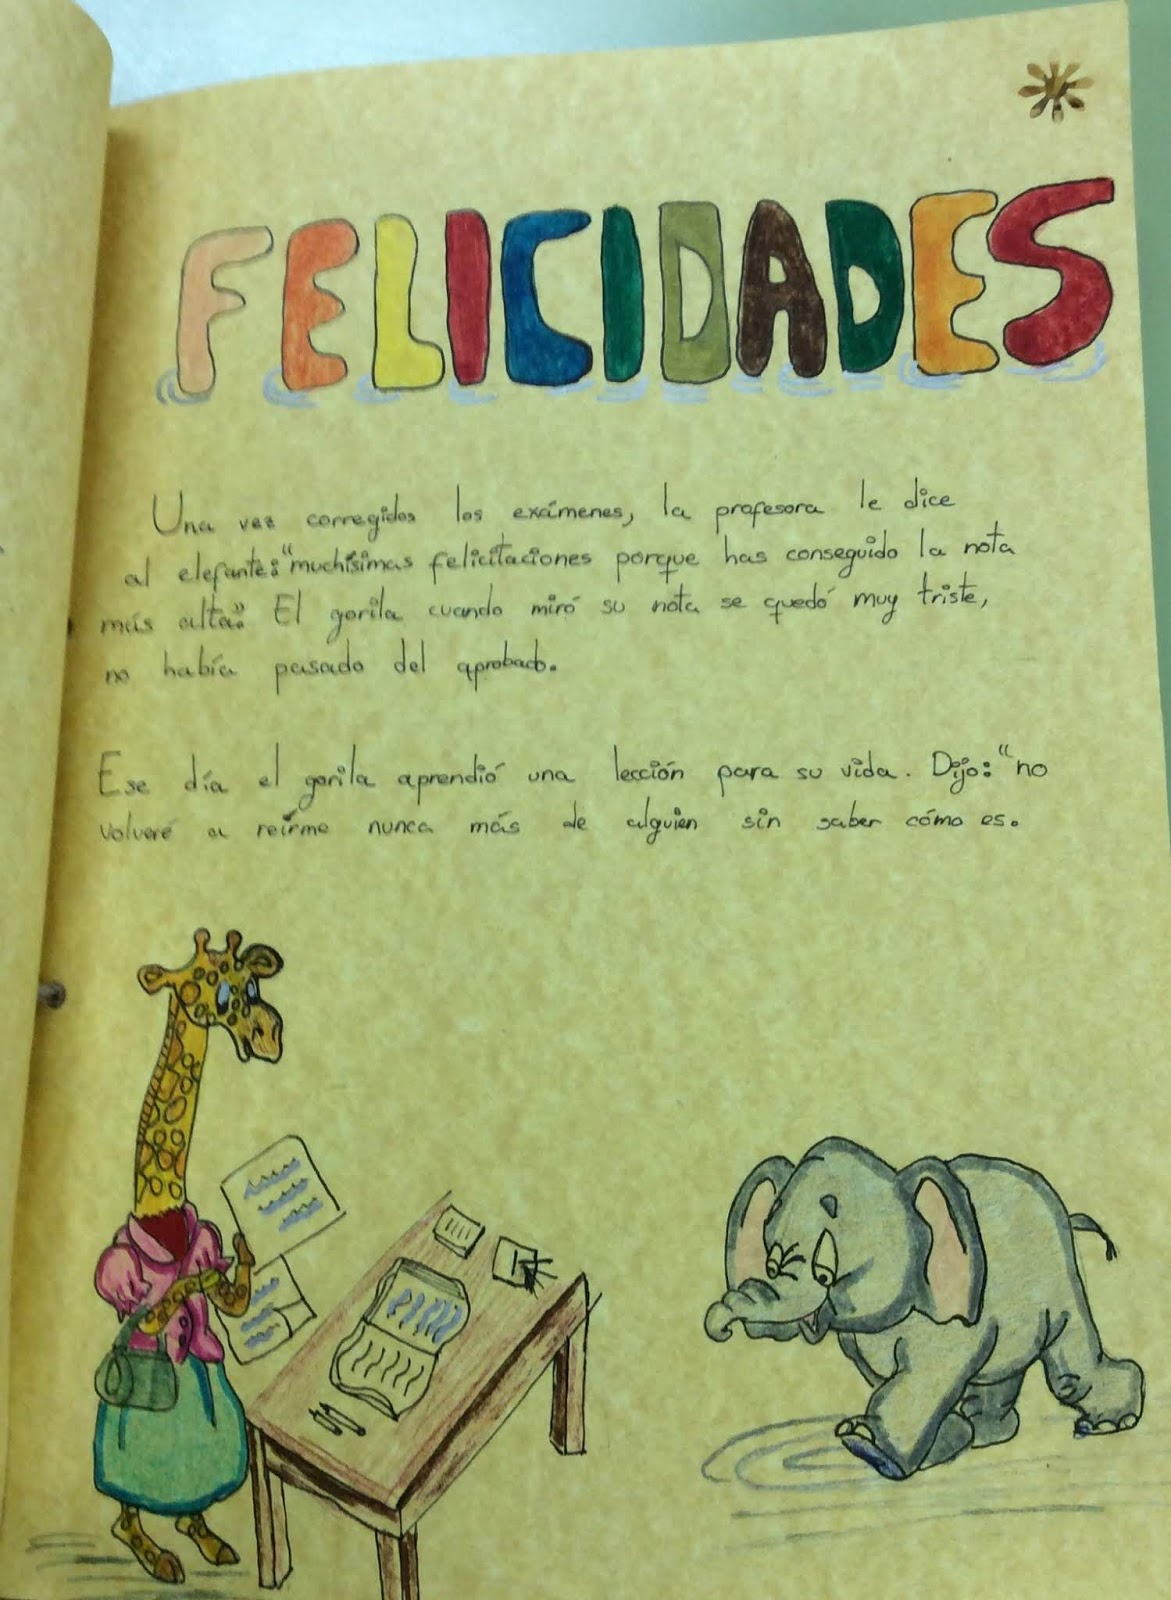 FELICIDADES
Una vez corregidos los exámenes, la profesora le dice
al elefante: "muchísimas felicitaciones porque has conseguido la nota
más alta". El gorila cuando miró su nota se quedó muy triste,
no había pasado del aprobado.
Ese día el gorila aprendió una lección para su vida. Dijo: "no
volveré a reírme nunca más de alguien sin saber cómo es.